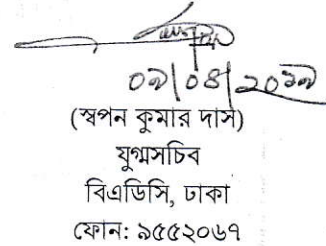 ০৯|০৪|২০১৯
(স্বপন কুমার দাস)
যুগ্মসচিব
বিএডিসি, ঢাকা
ফোন: ৯৫৫২০৬৭